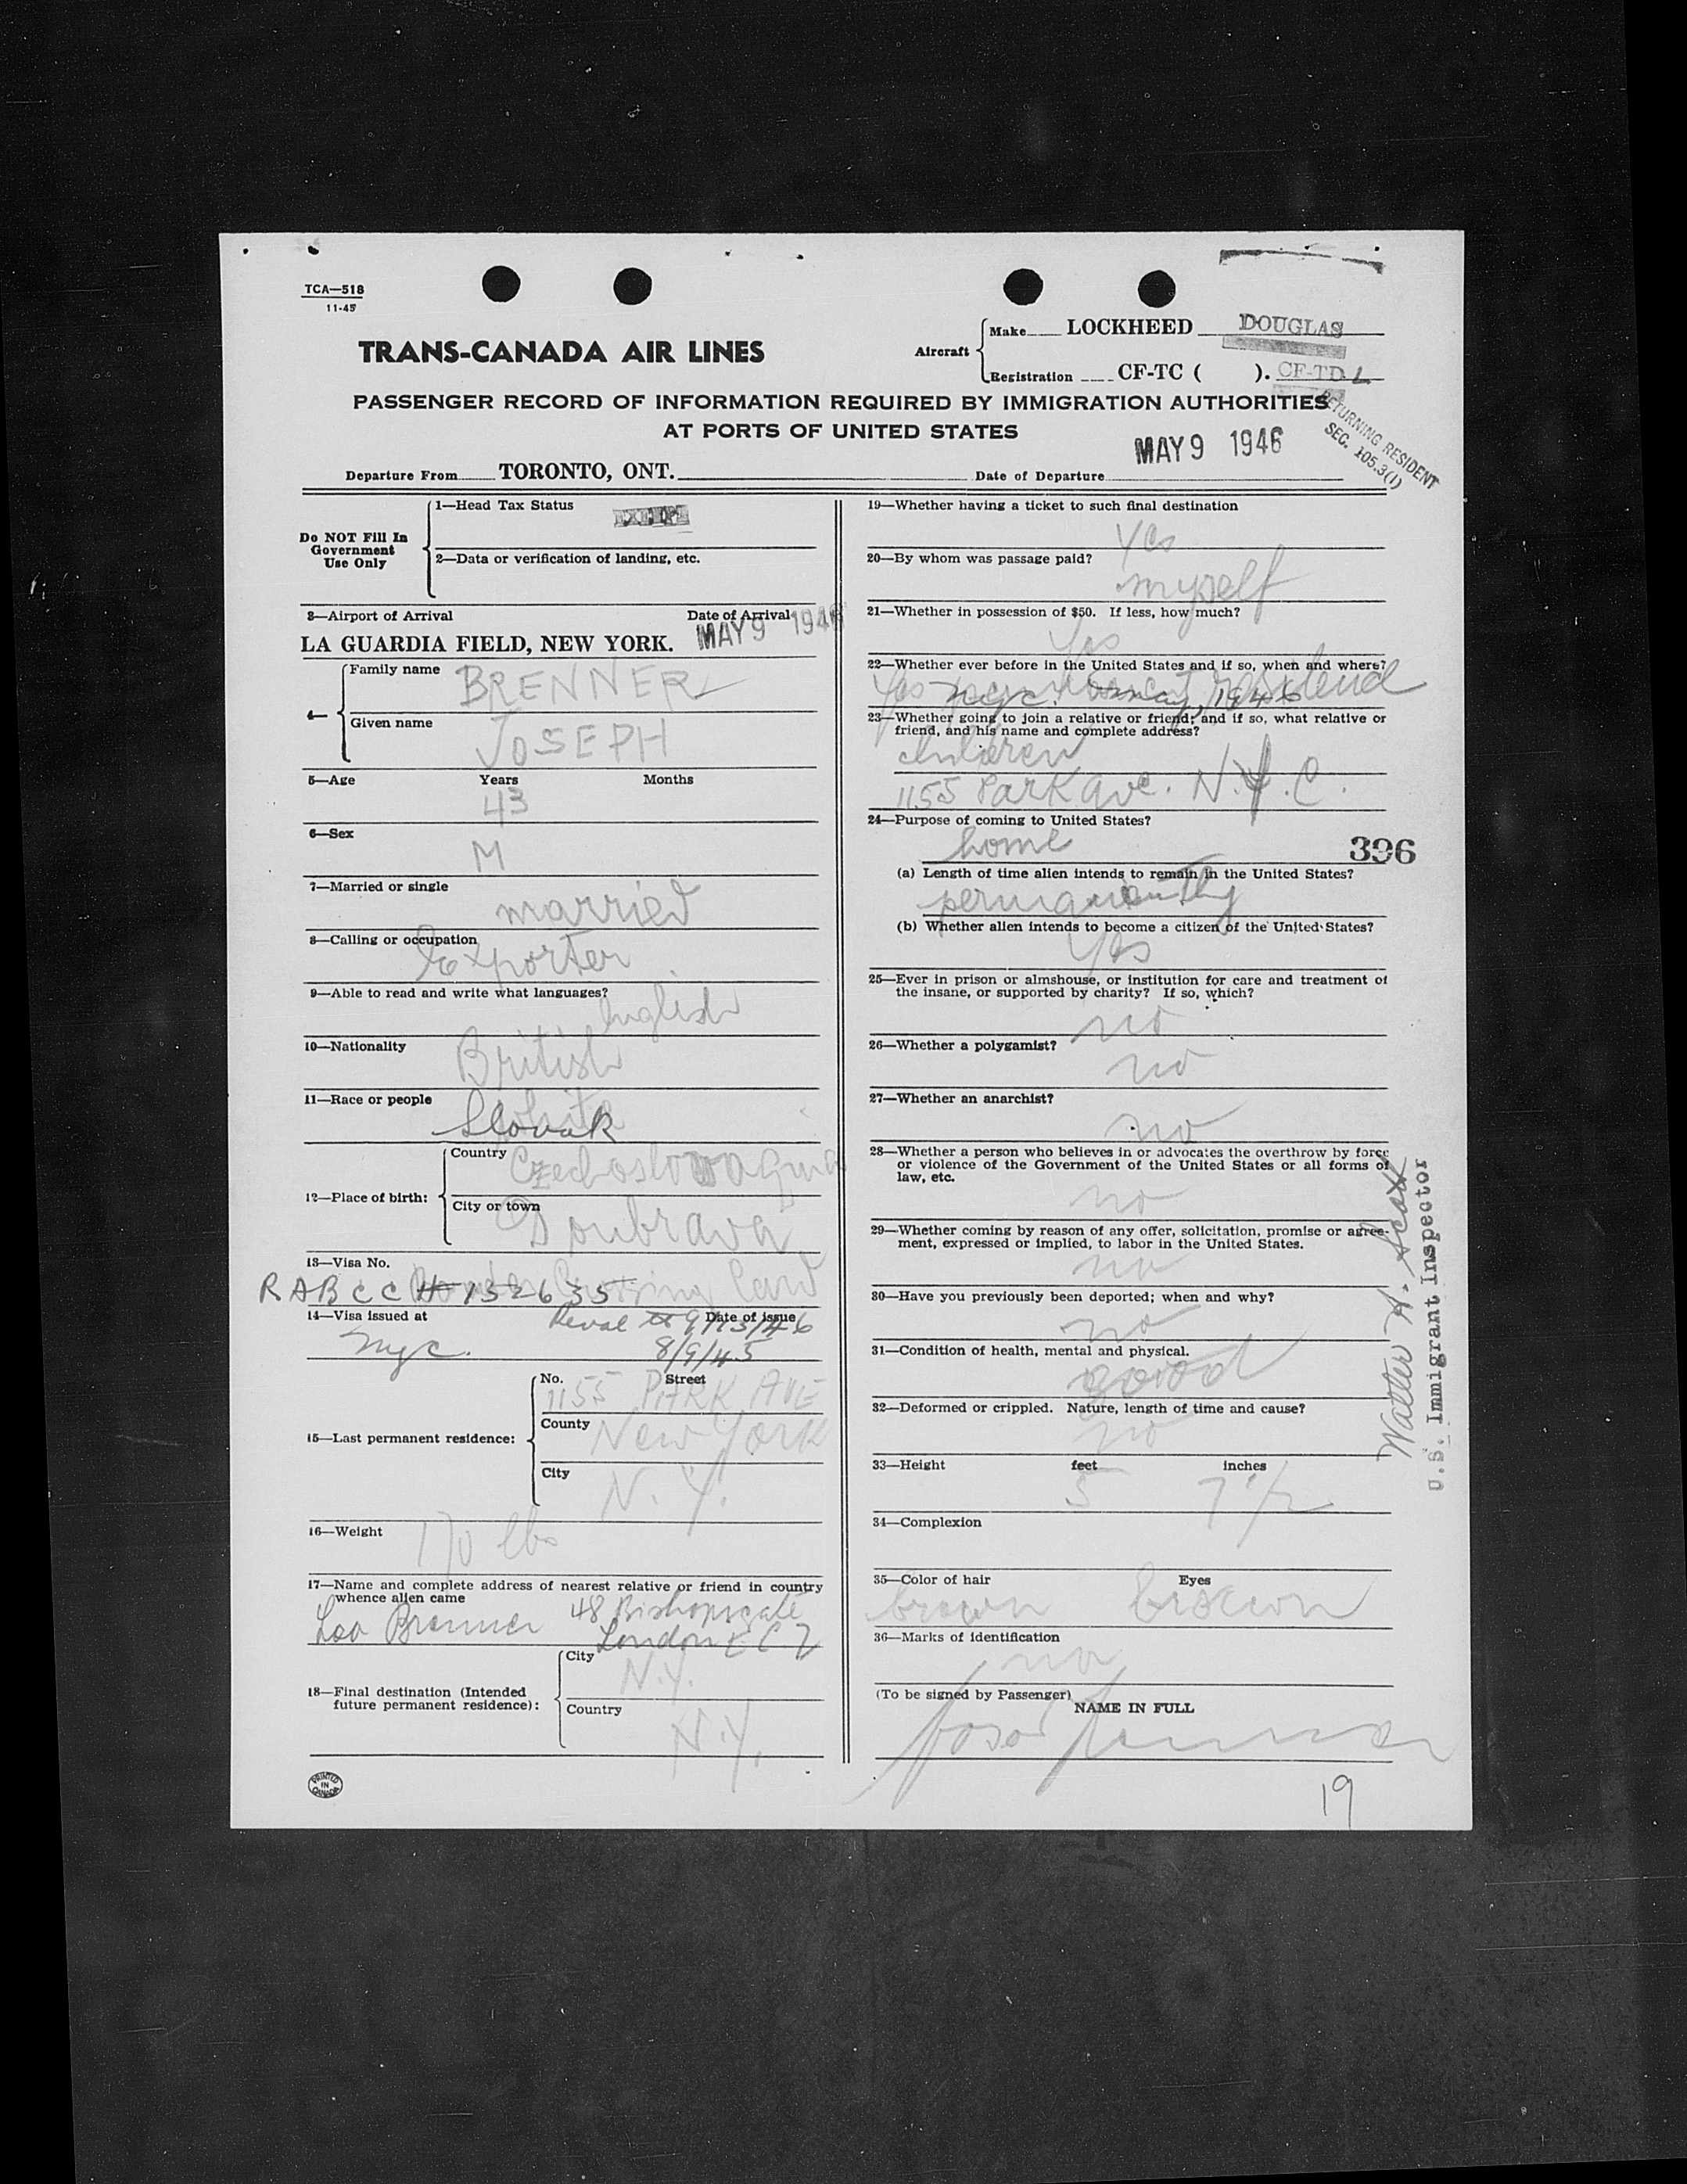 TCA—518
11-45
TRANS-CANADA AIR LINES
Aircraft
Make LOCKHEED DOUGLAS
Registration CF-TC ( ). CF-TD L
PASSENGER RECORD OF INFORMATION REQUIRED BY IMMIGRATION AUTHORITIES
AT PORTS OF UNITED STATES
RETURNING RESIDENT
SEC. 105.3(1)
MAY 9 1946
Departure From TORONTO, ONT. Date of Departure
Do NOT Fill In
Government
Use Only
1—Head Tax Status
2—Data or verification of landing, etc.
3—Airport of Arrival Date of Arrival
LA GUARDIA FIELD, NEW YORK. MAY 9 1946
4—
Family name BRENNER
Given name JOSEPH
5—Age Years Months
43
6—Sex
M
7—Married or single
married
8—Calling or occupation
Exporter
9—Able to read and write what languages?
English
10—Nationality
British
11—Race or people
Slovak
12—Place of birth:
Country Czechoslowaquia
City or town
Doubrava
13—Visa No.
RABCC # 152635
14—Visa issued at Date of issue
nyc. 8/9/45
15—Last permanent residence:
No. Street
1155 PARK AVE
County New York
City
N. Y.
16—Weight
170 lbs
17—Name and complete address of nearest relative or friend in country
whence alien came
Leo Brenner 48 Bishopsgate
London E C 2
18—Final destination (Intended
future permanent residence):
City
N.Y.
Country
N.Y.
PRINTED
IN
CANADA
19—Whether having a ticket to such final destination
Yes
20—By whom was passage paid?
myself
21—Whether in possession of $50. If less, how much?
Yes
22—Whether ever before in the United States and if so, when and where?
Yes permanent resident
nyc. may, 1946
23—Whether going to join a relative or friend; and if so, what relative or
friend, and his name and complete address?
children
1155 Park Ave. N.Y.C.
24—Purpose of coming to United States?
home
396
(a) Length of time alien intends to remain in the United States?
permanently
(b) Whether alien intends to become a citizen of the United States?
Yes
25—Ever in prison or almshouse, or institution for care and treatment of
the insane, or supported by charity? If so, which?
no
26—Whether a polygamist?
no
27—Whether an anarchist?
no
28—Whether a person who believes in or advocates the overthrow by force
or violence of the Government of the United States or all forms of
law, etc.
no
29—Whether coming by reason of any offer, solicitation, promise or agree-
ment, expressed or implied, to labor in the United States.
no
30—Have you previously been deported; when and why?
no
31—Condition of health, mental and physical.
good
32—Deformed or crippled. Nature, length of time and cause?
no
33—Height feet inches
5 7 1/2
34—Complexion
35—Color of hair Eyes
brown brown
36—Marks of identification
no
(To be signed by Passenger)
NAME IN FULL
Walter H. Scott
U.S. Immigrant Inspector
19